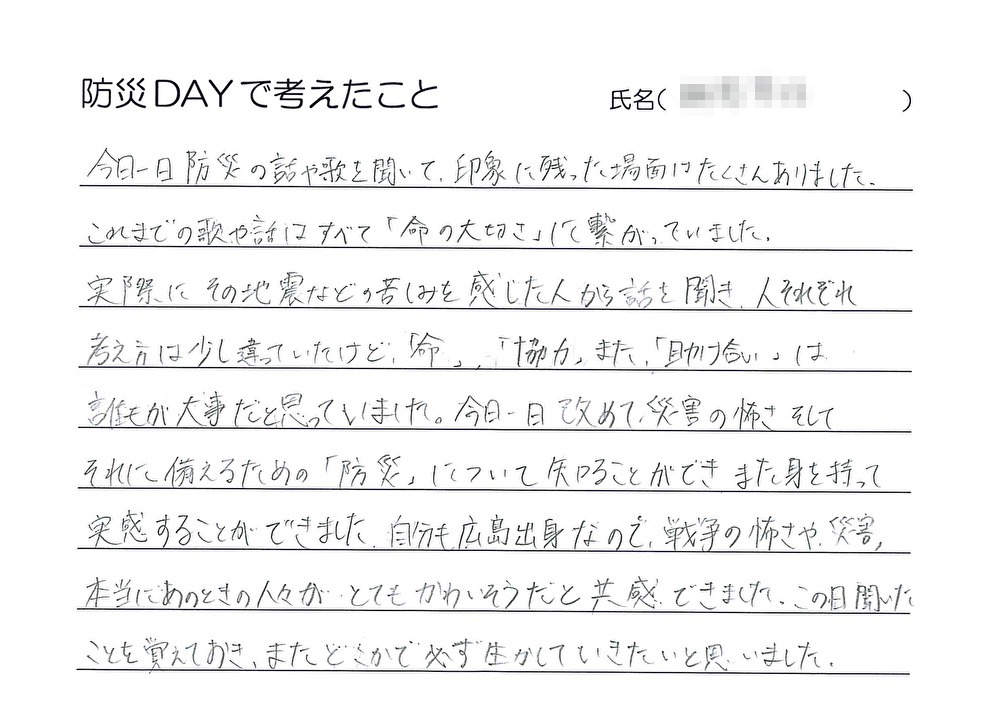 防災DAYで考えたこと 氏名( )
今日一日防災の話や歌を聞いて、印象に残った場面はたくさんありました。
これまでの歌や話はすべて「命の大切さ」に繋がっていました。
実際にその地震などの苦しみを感じた人から話を聞き、人それぞれ
考え方は少し違っていたけど、「命」、「協力」また、「助け合い」は
誰もが大事だと思っていました。今日一日改めて、災害の怖さそして
それに備えるための「防災」について知ることができまた身を持って
実感することができました。自分も広島出身なので、戦争の怖さや、災害、
本当にあのときの人々がとてもかわいそうだと共感できました。この日聞いた
ことを覚えておき、またどこかで必ず生かしていきたいと思いました。